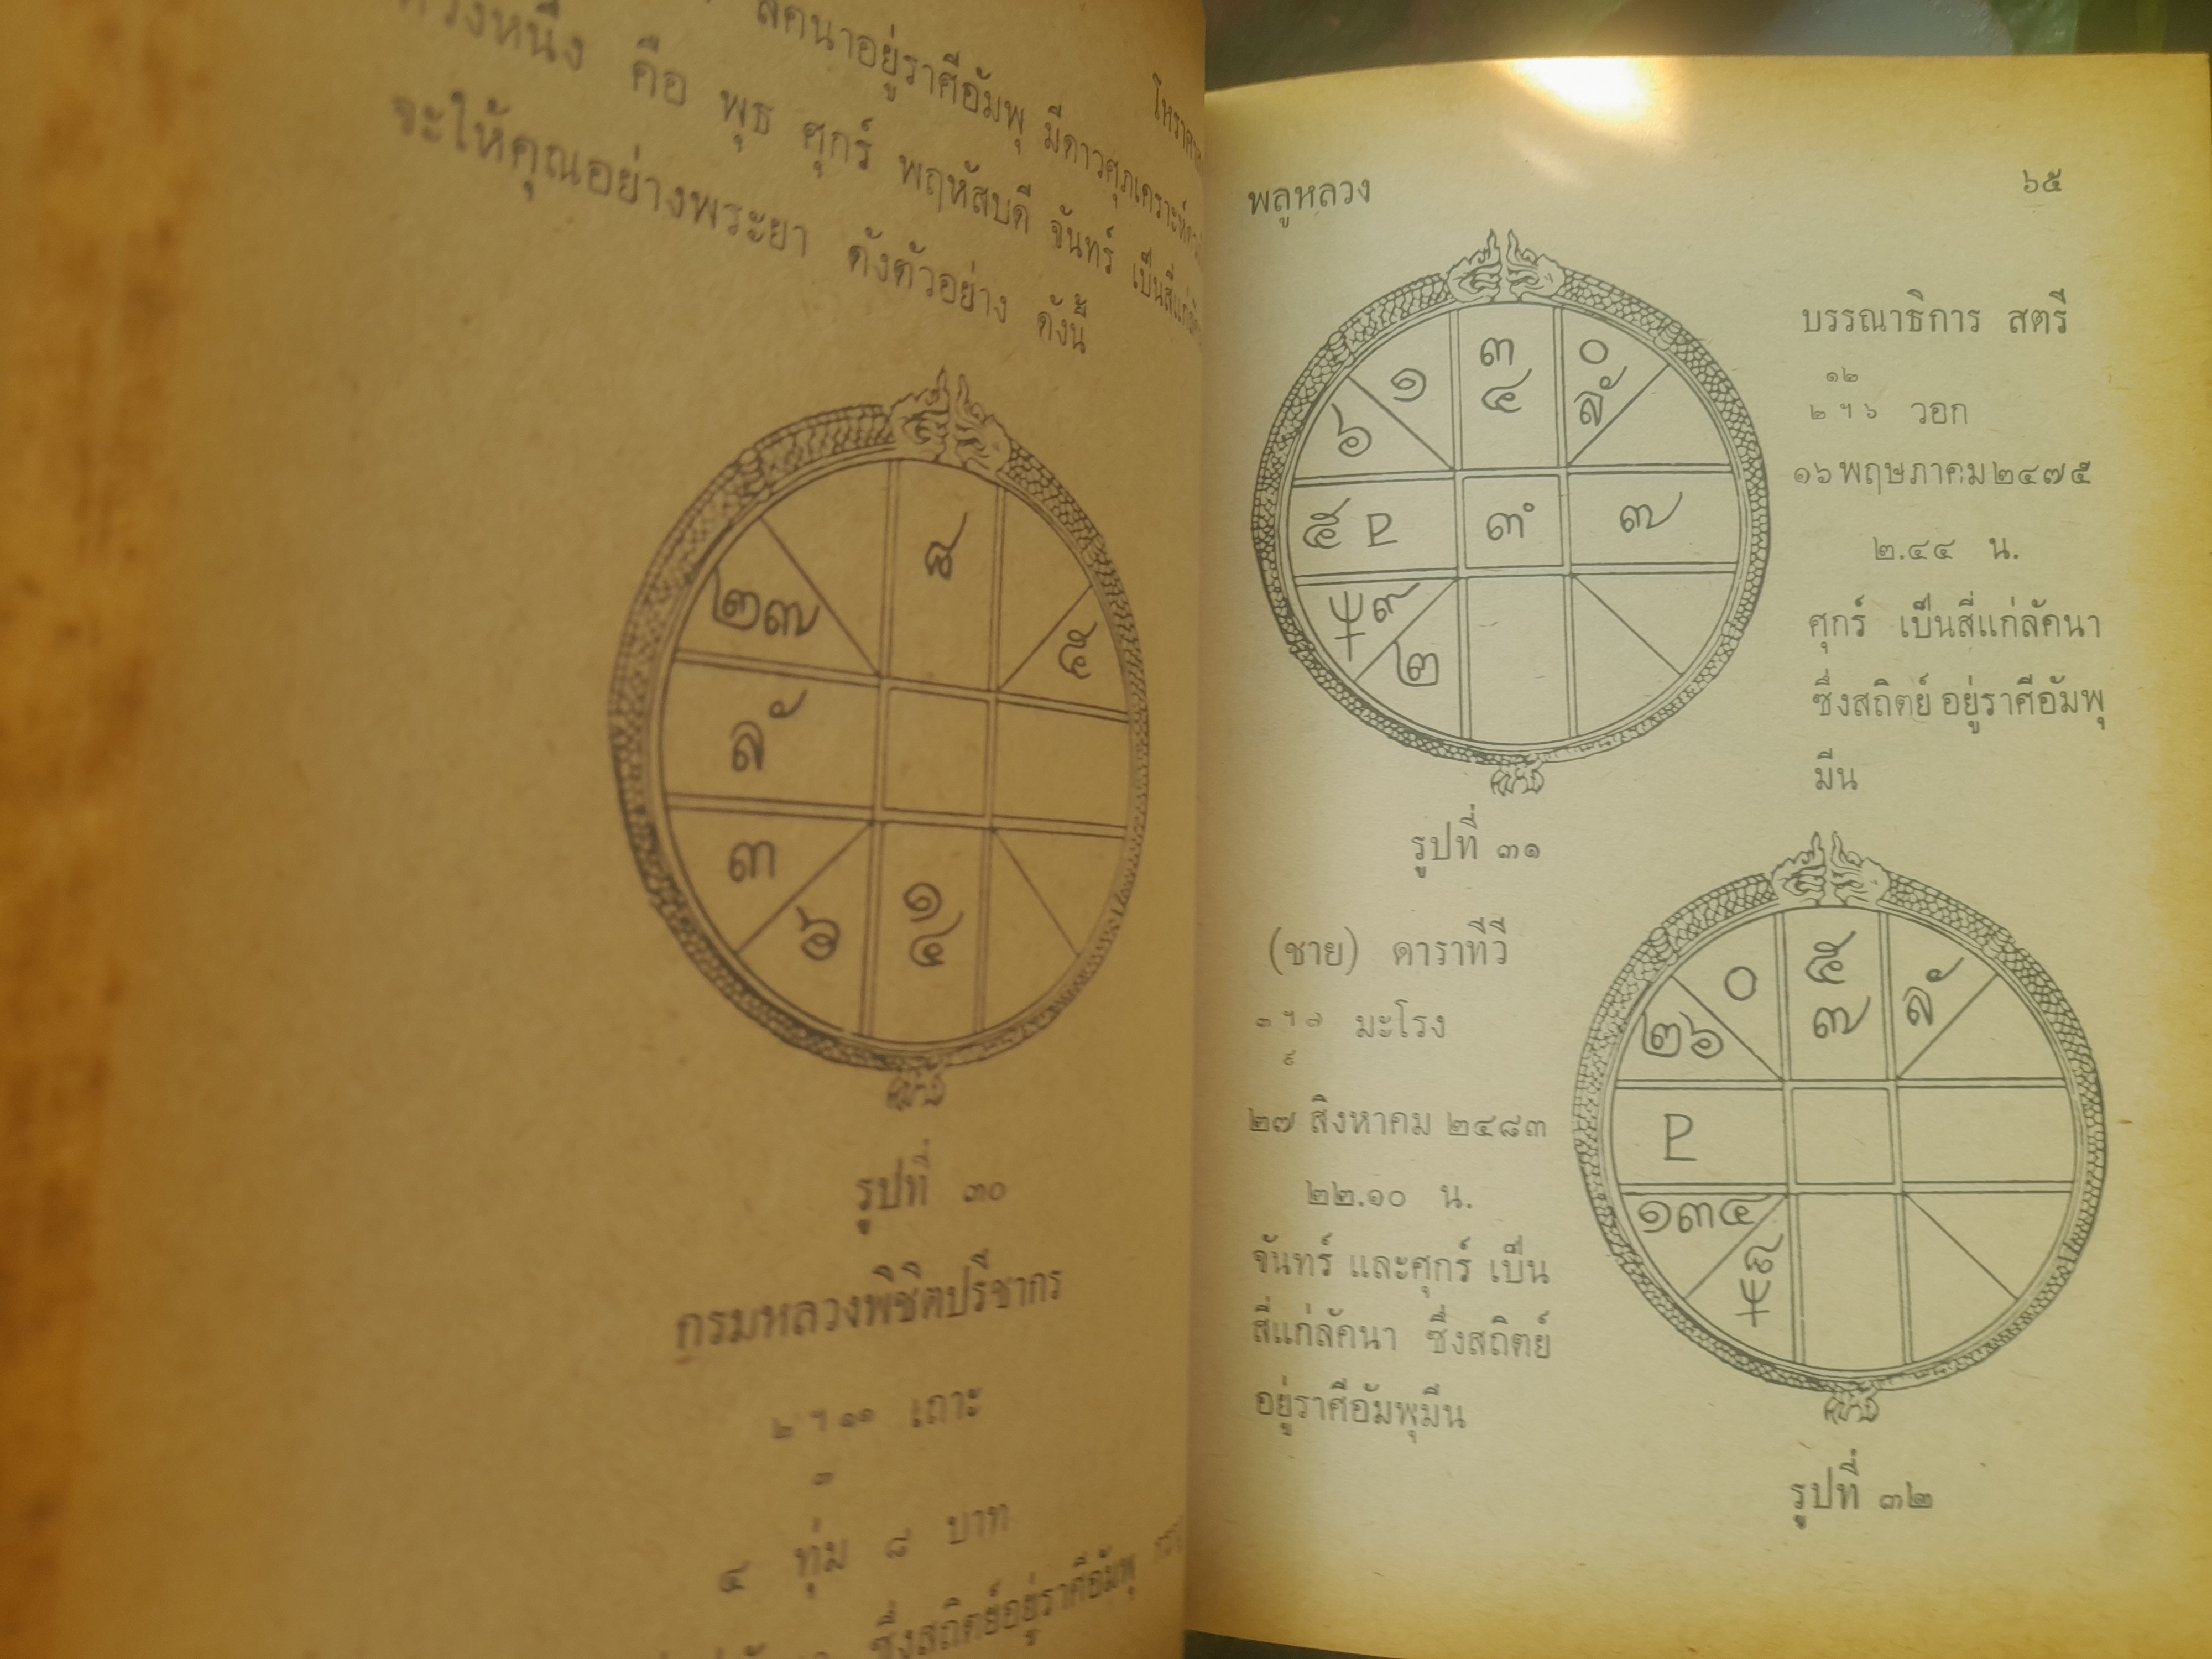 ลัคนาอยู่ราศีอัมพุ มีดาวศุภเคราะห์
คือ พุธ ศุกร์ พฤหัสบดี จันทร์ เป็นสี่แก่
จะให้คุณอย่างพระยา ดังตัวอย่าง ดังนี้
๘
๒๗
๕
ลั
๓
๖
๑
๔
รูปที่ ๓๐
กรมหลวงพิชิตปรีชากร
๖ ฯ ๑๑ เถาะ
๓
๔ ทุ่ม ๘ บาท
ซึ่งสถิตย์อยู่ราศีอัมพุ
พลูหลวง ๖๕
๑
๓
๔
๐
ลั
๖
๕ P
๓ํ
๗
Ψ ๙
๒
รูปที่ ๓๑
บรรณาธิการ สตรี
๑๒
๒ ฯ ๖ วอก
๑๖ พฤษภาคม ๒๔๗๕
๒.๔๔ น.
ศุกร์ เป็นสี่แก่ลัคนา
ซึ่งสถิตย์ อยู่ราศีอัมพุ
มีน
(ชาย) ดาราทีวี
๓ ฯ ๗ มะโรง
๙
๒๗ สิงหาคม ๒๔๘๓
๒๒.๑๐ น.
จันทร์ และศุกร์ เป็น
สี่แก่ลัคนา ซึ่งสถิตย์
อยู่ราศีอัมพุมีน
๐
๕
๗
ลั
๒๖
P
๑๓๔
๘
Ψ
รูปที่ ๓๒